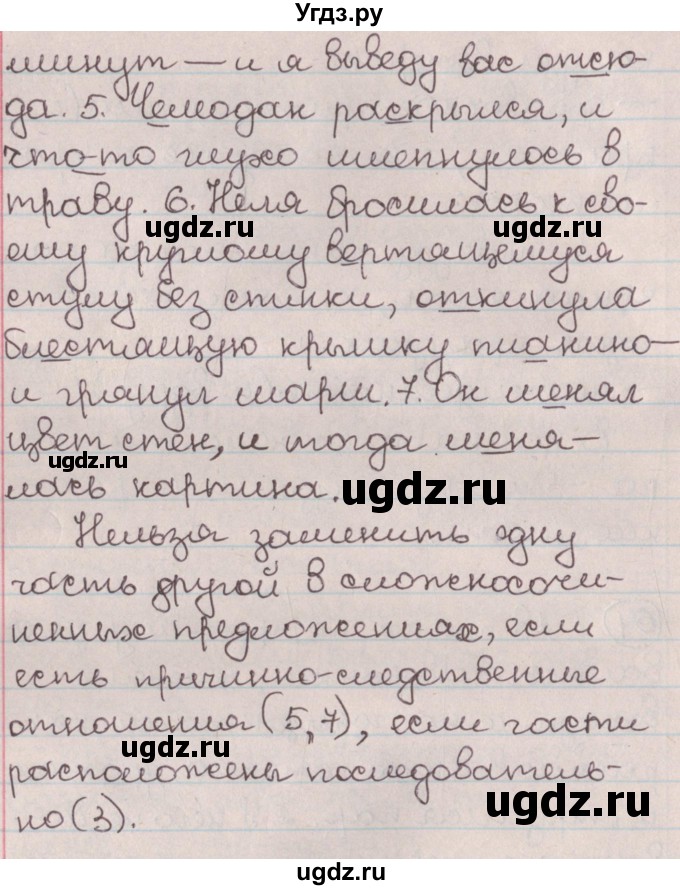 Угдз.ру
минут — и я выведу вас отсю-
да. 5. Чемодан раскрылся, и
что-то глухо шлепнулось в
траву. 6. Неля бросилась к сво-
ugdz.ru ugdz.ru
ему круглому вертящемуся
стулу без спинки, откинула
блестящую крышку пианино —
и грянул марш. 7. Он менял
цвет стен, и тогда меня-
ugdz.ru
лась картина.
ugdz.ru
Нельзя заменить одну
часть другой в сложносочи-
ненных предложениях, если
ugdz.ru ugdz.ru
есть причинно-следственные
отношения (5,7), если части
ugdz.ru
расположены последователь-
но (3).
ugdz.ru
ugdz.ru